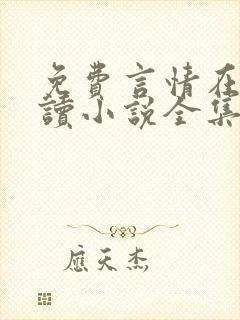 免費言情在
讀小說全集
應天杰